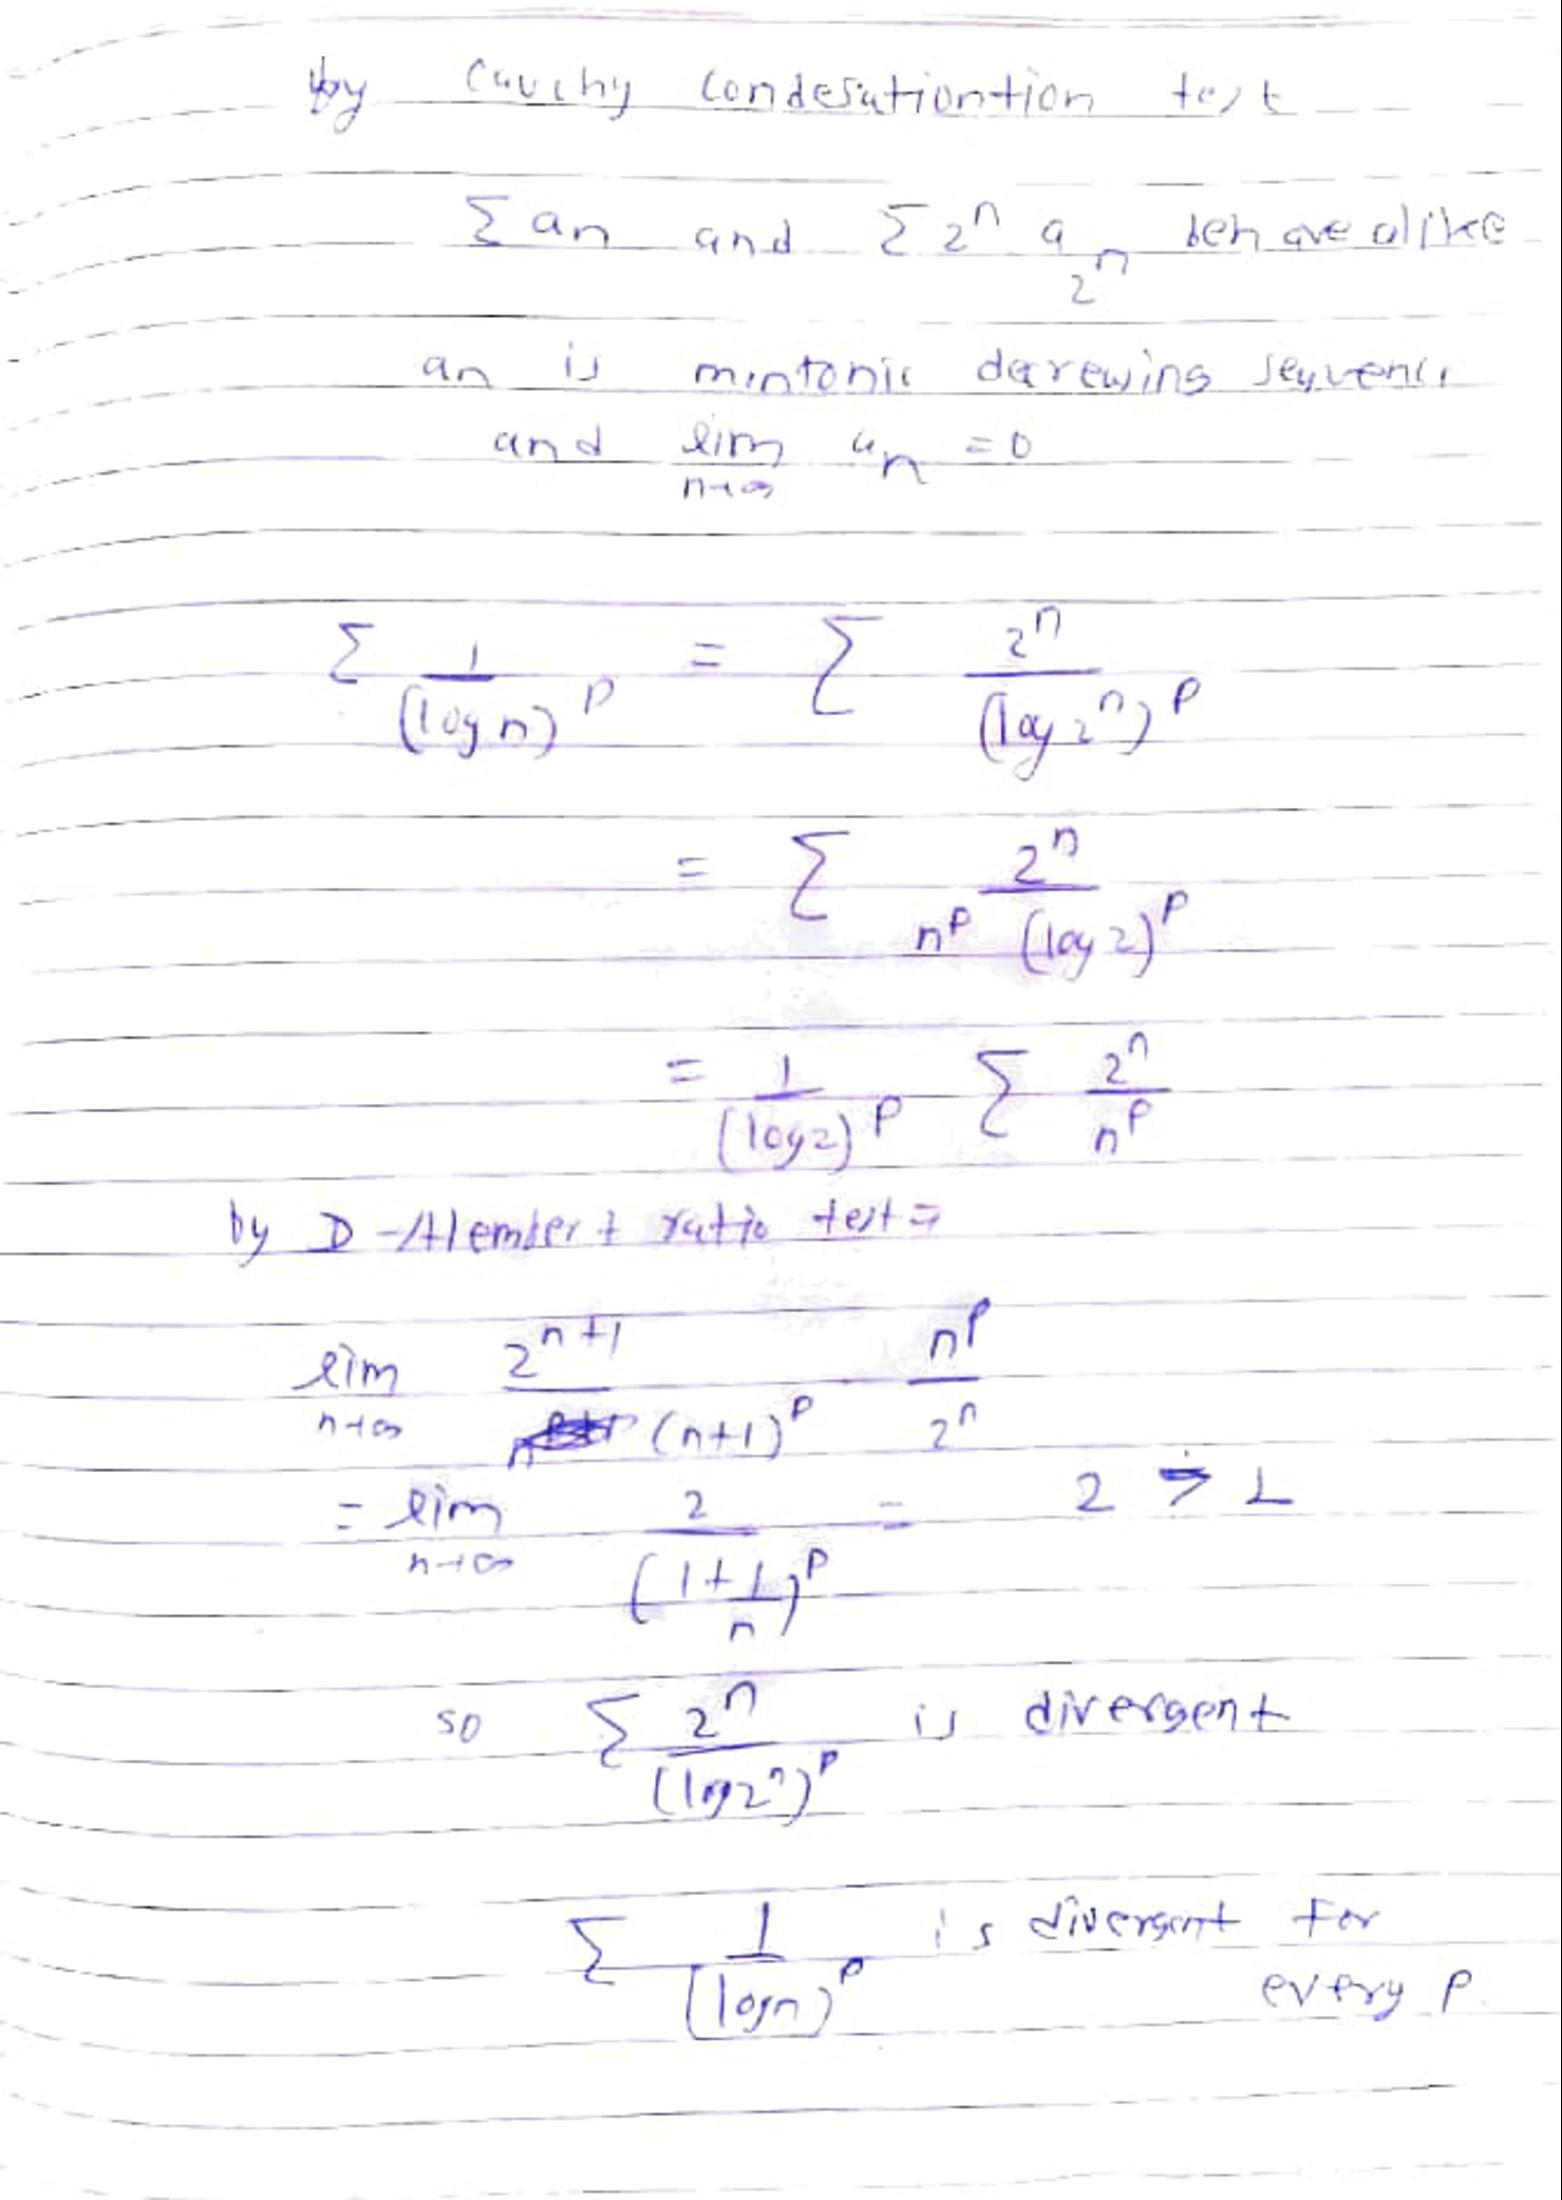 by Cauchy Condesationtion test
Σ an and Σ 2^n a_2^n behave alike
an is mintonic decrewing sequence
and lim n→∞ an = 0
Σ 1/(log n)^p = Σ 2^n/(log 2^n)^p
= Σ 2^n/n^p (log 2)^p
= 1/(log 2)^p Σ 2^n/n^p
by D-Alembert ratio test ⇒
lim n→∞ 2^n+1/(n+1)^p n^p/2^n
= lim n→∞ 2/(1+1/n)^p = 2 > 1
so Σ 2^n/(log 2^n)^p is divergent
Σ 1/(log n)^p is divergent for
every p